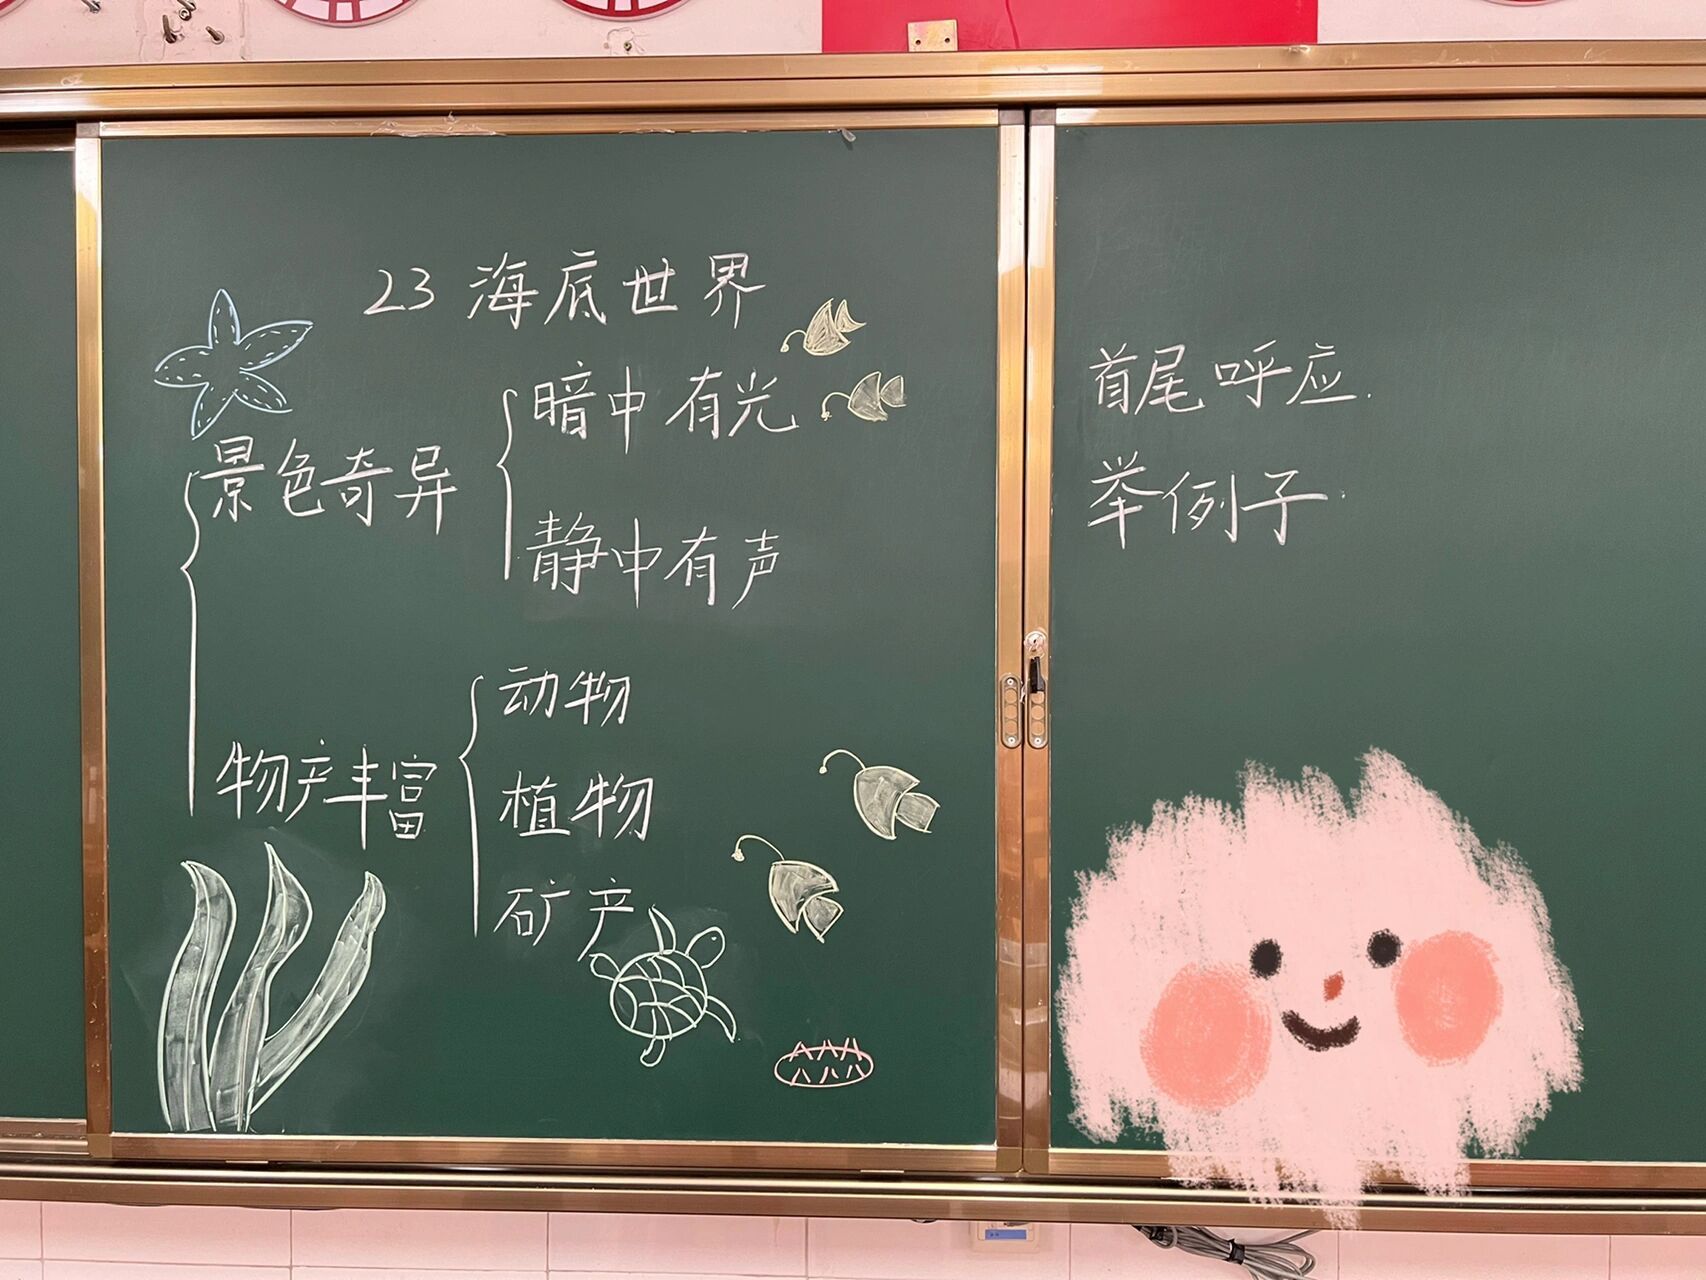 23 海底世界
景色奇异
暗中有光
静中有声
物产丰富
动物
植物
矿产
首尾呼应.
举例子.